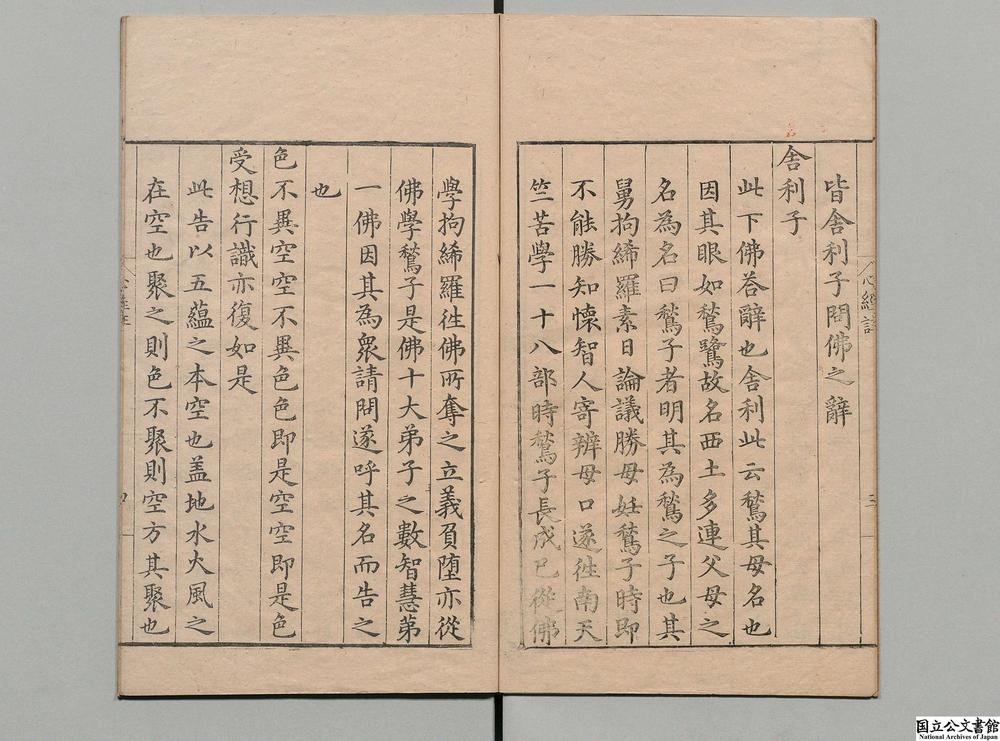 皆舎利子問佛之辭
舎利子
此下佛荅辭也舎利此云鶖其母名也
因其眼如鶖鷺故名西土多連父母之
名為名曰鶖子者明其為鶖之子也其
舅拘絺羅素日論議勝母妊鶖子時即
不能勝知懐智人寄辨母口遂徃南天
竺苦學一十八部時鶖子長成已從佛
學拘絺羅徃佛所奪之立義負堕亦從
佛學鶖子是佛十大弟子之數智慧苐
一佛因其為衆請問遂呼其名而告之
也
色不異空空不異色色即是空空即是色
受想行識亦復如是
此告以五蘊之本空也盖地水火風之
在空也聚之則色不聚則空方其聚也
心經註
三
四
国立公文書館
National Archives of Japan